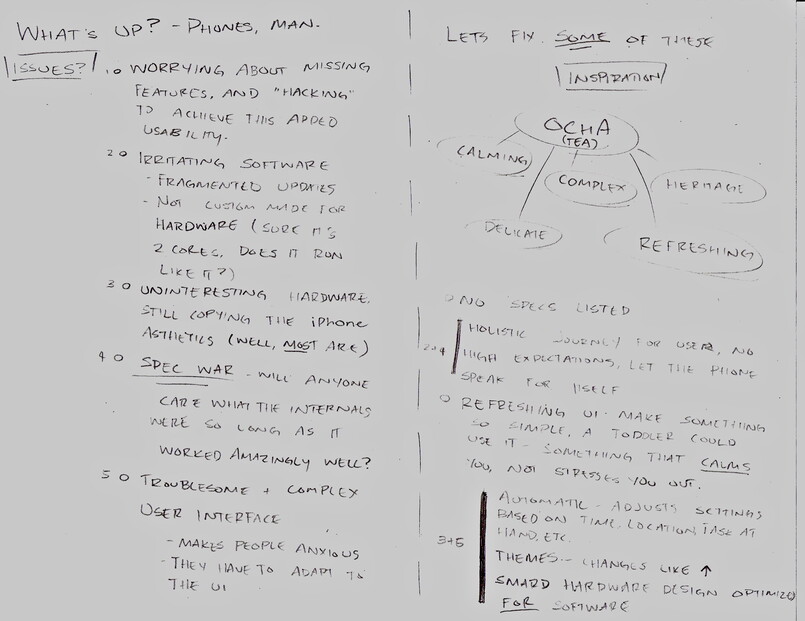 WHAT'S UP? - PHONES, MAN.
ISSUES?
1. O WORRYING ABOUT MISSING
FEATURES, AND "HACKING"
TO ACHIEVE THIS ADDED
USABILITY.
2 O IRRITATING SOFTWARE
- FRAGMENTED UPDATES
- NOT CUSTOM MADE FOR
HARDWARE (SURE IT'S
2 CORES, DOES IT RUN
LIKE IT?)
3 O UNINTERESTING HARDWARE.
STILL COPYING THE iPhone
ASTHETICS (WELL, MOST ARE)
4 O SPEC WAR - WILL ANYONE
CARE WHAT THE INTERNALS
WERE SO LONG AS IT
WORKED AMAZINGLY WELL?
5 O TROUBLESOME + COMPLEX
USER INTERFACE
- MAKES PEOPLE ANXIOUS
- THEY HAVE TO ADAPT TO
THE UI
LETS FIX SOME OF THESE
INSPIRATION
OCHA
(TEA)
CALMING
COMPLEX
HERITAGE
DELICATE
REFRESHING
O NO SPECS LISTED
2+4
HOLISTIC JOURNEY FOR USER, NO
HIGH EXPECTATIONS, LET THE PHONE
SPEAK FOR ITSELF
O REFRESHING UI - MAKE SOMETHING
SO SIMPLE, A TODDLER COULD
USE IT - SOMETHING THAT CALMS
YOU, NOT STRESSES YOU OUT.
3+5
AUTOMATIC - ADJUSTS SETTINGS
BASED ON TIME, LOCATION, TASK AT
HAND, ETC.
THEMES - CHANGES LIKE ↑
SMARD HARDWARE DESIGN OPTIMIZED
FOR SOFTWARE